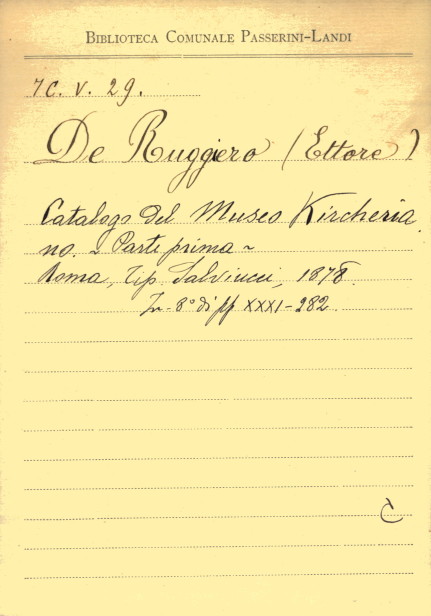 BIBLIOTECA COMUNALE PASSERINI-LANDI
7C. V. 29.
De Ruggiero (Ettore)
Catalogo del Museo Kircheria
no. ~ Parte prima ~
Roma, Tip. Salviucci, 1878.
In-8° di pp XXXI-282.
C